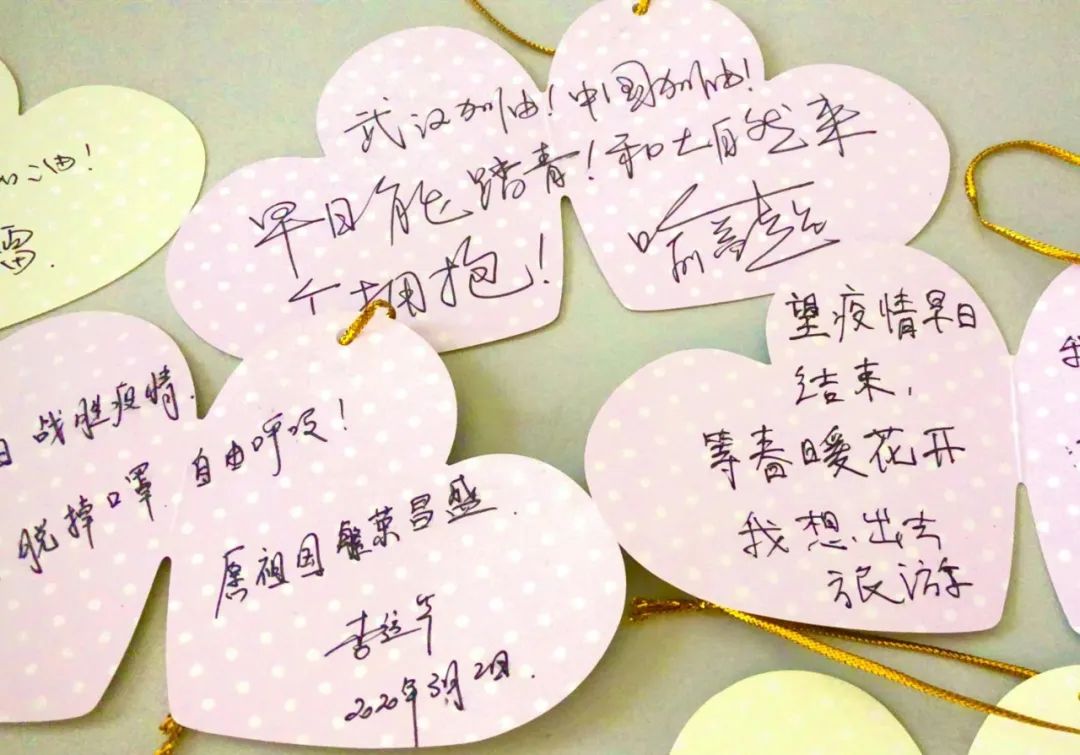 加油！
雷.
武汉加油！中国加油！
早日能踏青！和大自然来
个拥抱！
日战胜疫情.
脱掉口罩 自由呼吸！
愿祖国繁荣昌盛.
2020年3月2日.
望疫情早日
结束，
等春暖花开
我想出去
旅游
我